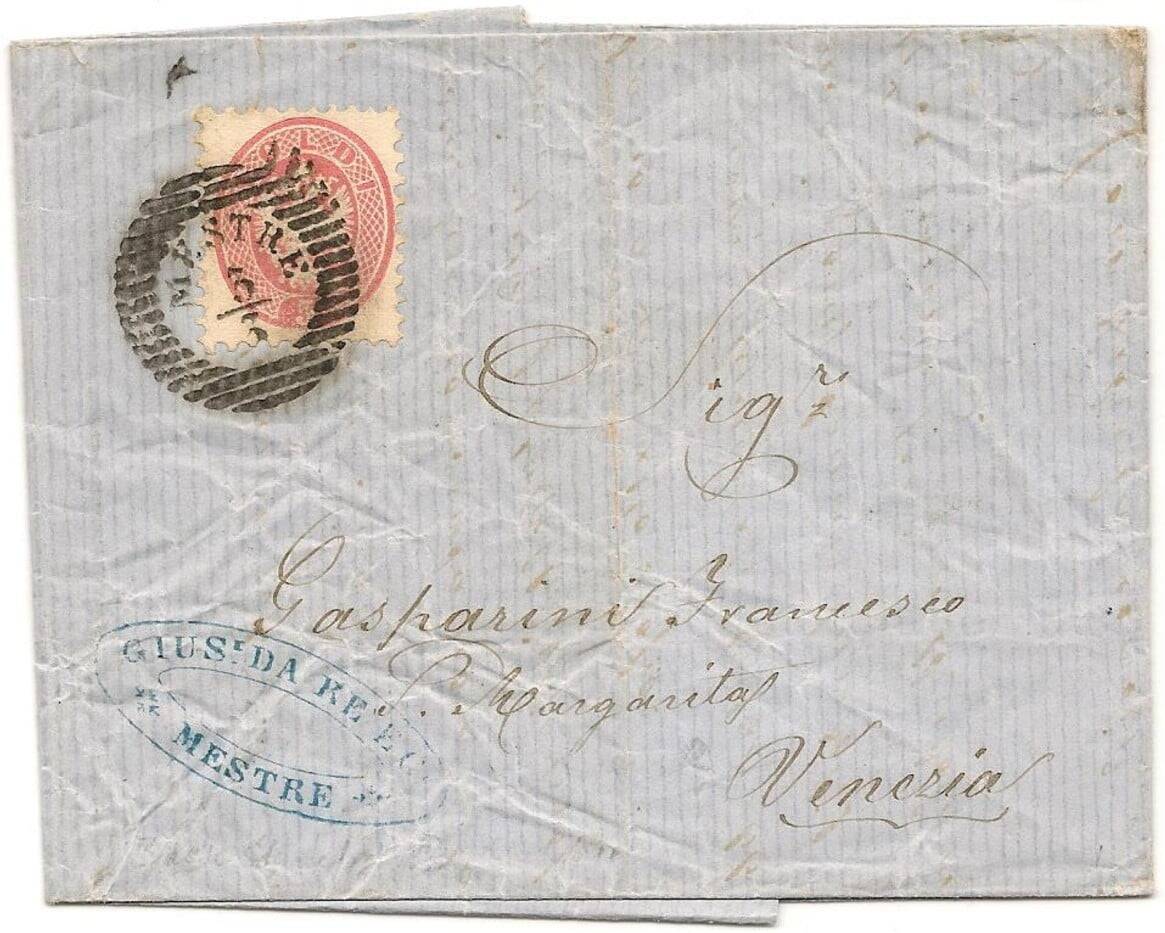 SOLDI
MESTRE
5/3
Sigr
Gasparini Francesco
S. Margarita
Venezia
GIUSE DA RE E C.
MESTRE